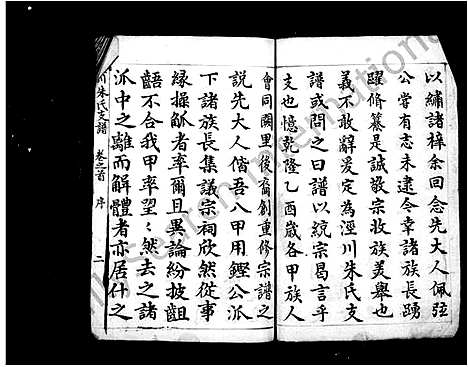 以繡諸梓余回念先大人佩弦
公嘗有志未逮今幸諸族長踴
躍脩纂是誠敬宗收族美舉也
義不敢辭爰定為涇川朱氏支
譜或問之曰譜以統宗曷言乎
支也憶乾隆乙酉歲各甲族人
會同闕里後裔創重修宗譜之
說先大人偕吾八甲用鏗公派
下諸族長集議宗祠欣然從事
緣操觚者率爾且異論紛披齟
齬不合我甲率望望然去之諸
派中之離而解體者亦居什之
川朱氏支譜 卷之首 序 二
My Search International